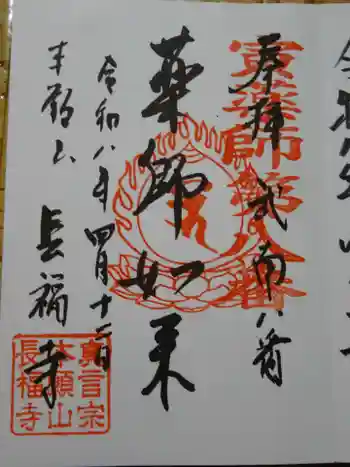 奉拝 武南八番
寅薬師第八番
薬師如来
令和八年四月十二日
本願山
長福寺
真言宗
本願山
長福寺